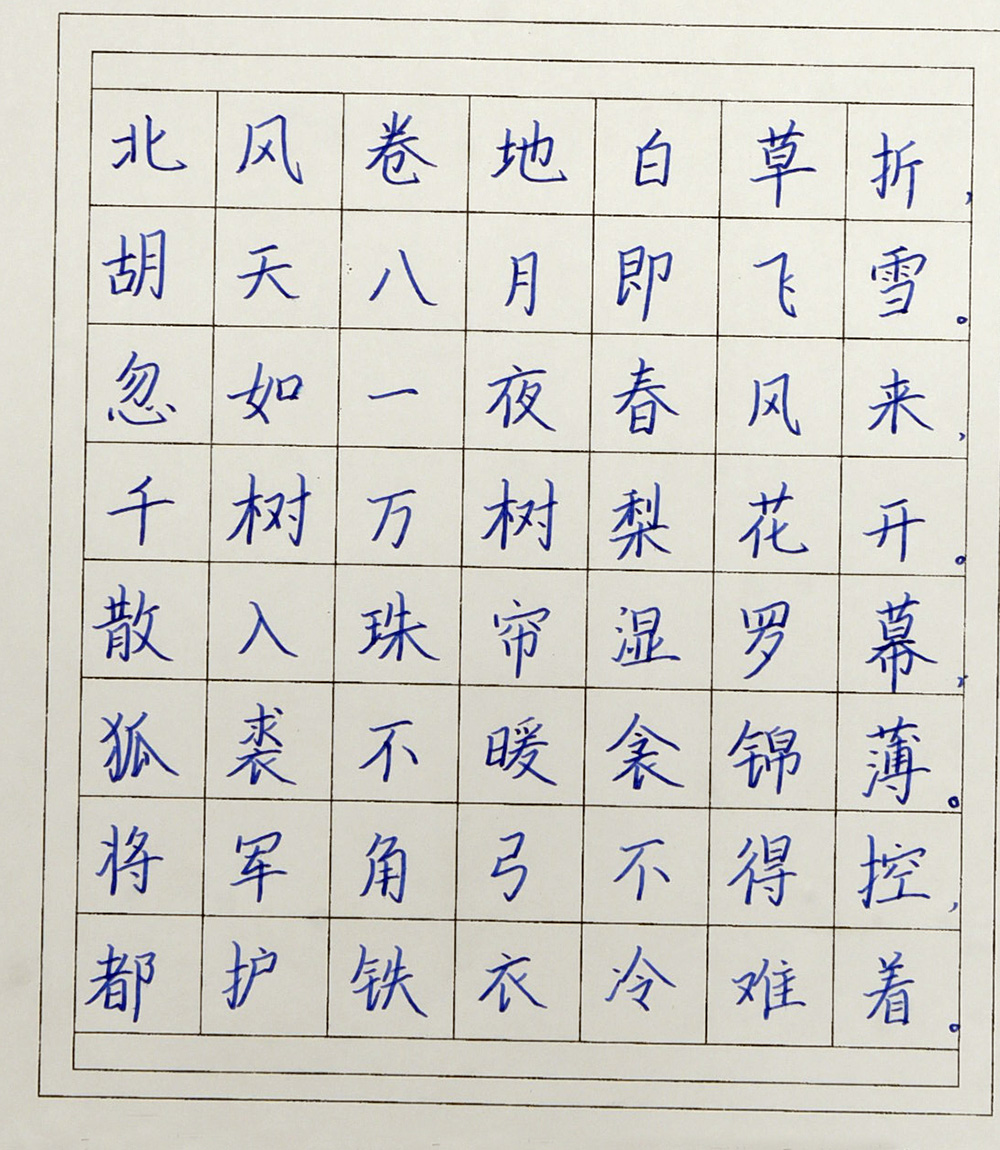 北风卷地白草折,
胡天八月即飞雪。
忽如一夜春风来,
千树万树梨花开。
散入珠帘湿罗幕,
狐裘不暖衾锦薄。
将军角弓不得控,
都护铁衣冷难着。